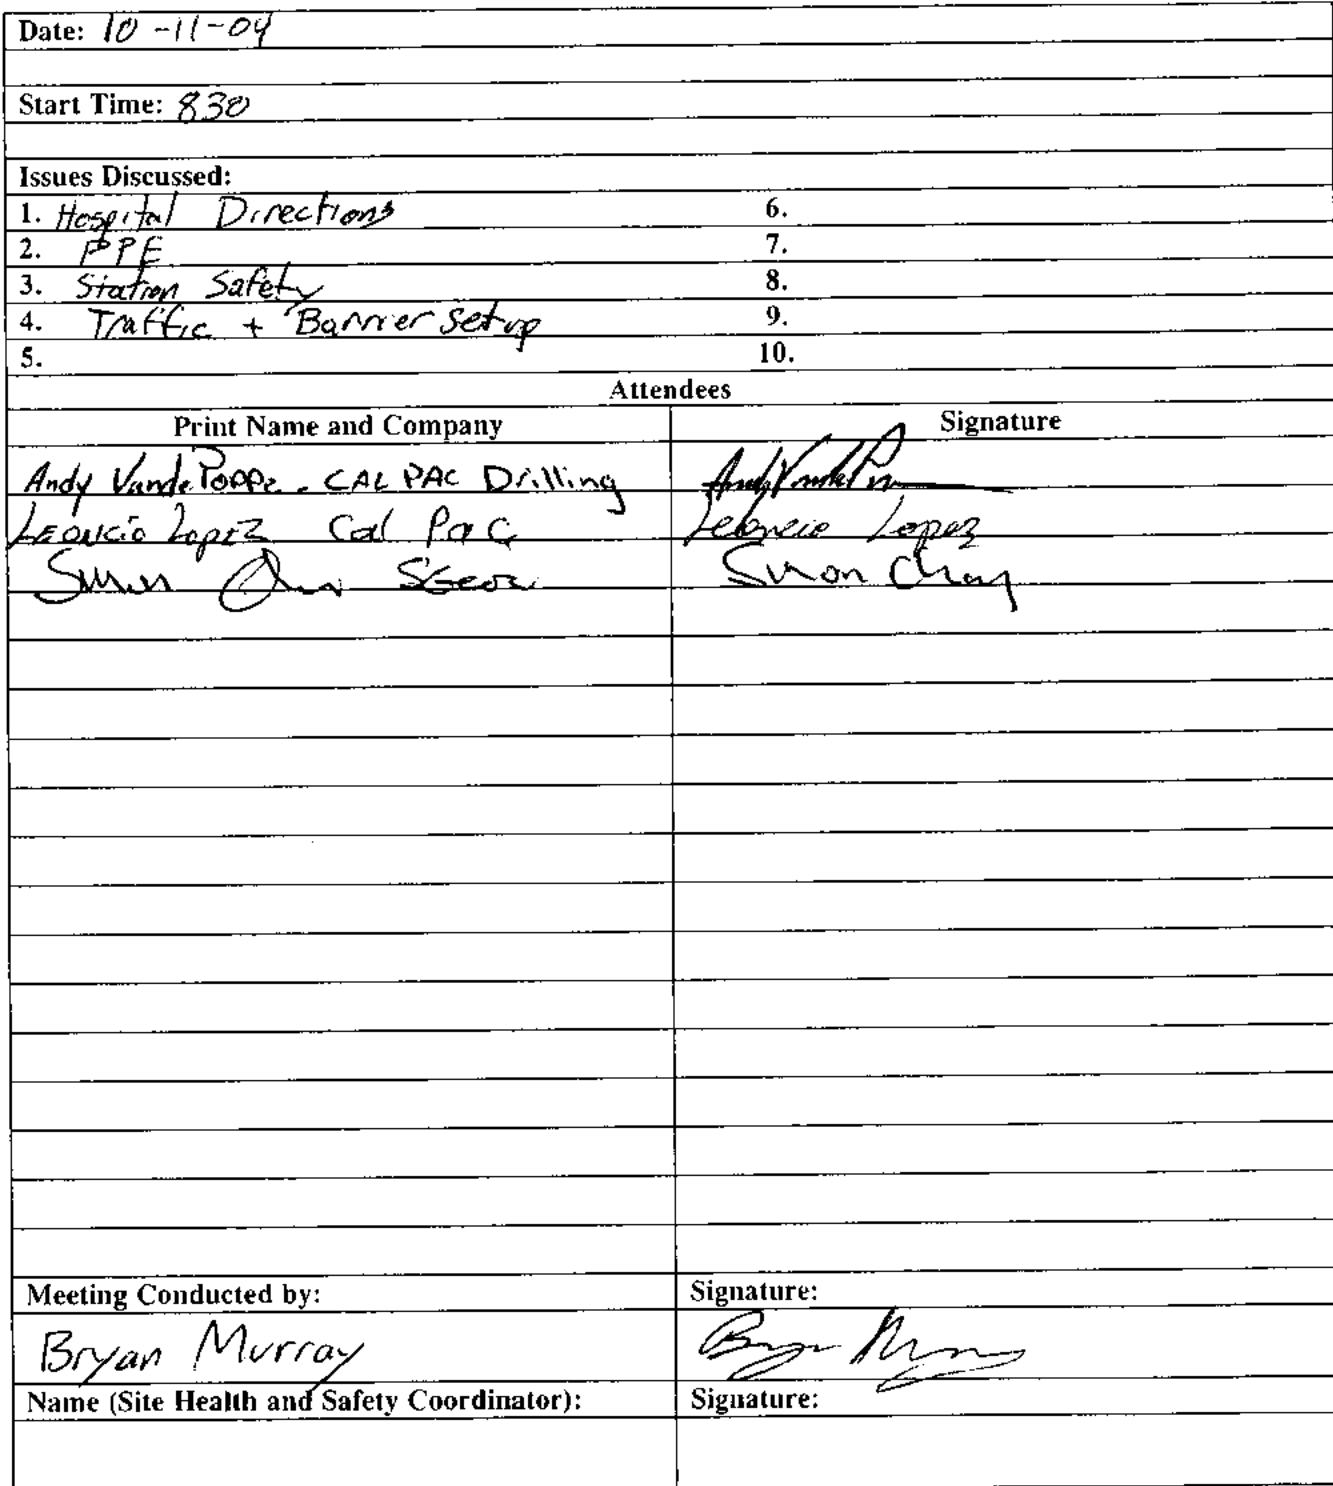 Date: 10-11-04
Start Time: 830
Issues Discussed:
1. Hospital Directions 6.
2. PPE 7.
3. Station Safety 8.
4. Traffic + Barrier Setup 9.
5. 10.
Attendees
Print Name and Company Signature
Andy VandePoppe - CAL PAC Drilling
Leoncio Lopez Cal Pac Leoncio Lopez
Simon
Meeting Conducted by: Signature:
Bryan Murray
Name (Site Health and Safety Coordinator): Signature: